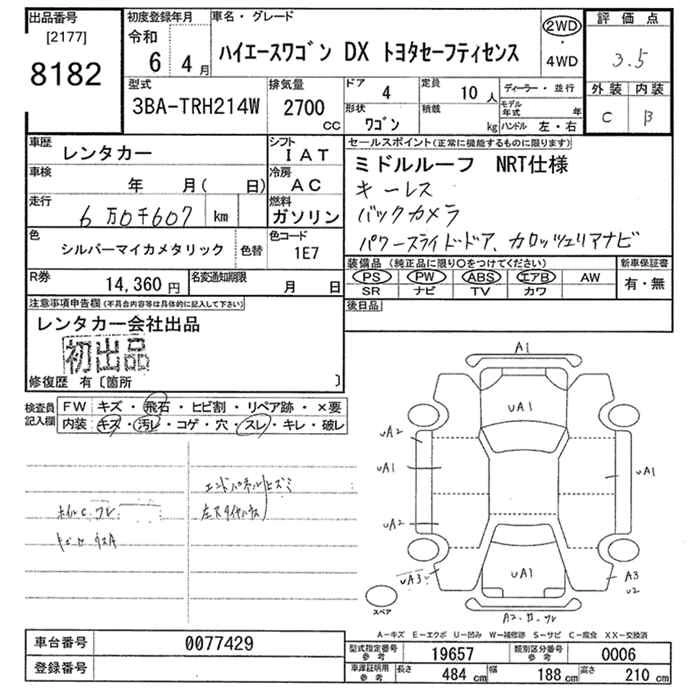 出品番号
[2177]
8182
初度登録年月
令和
6 4月
車名・グレード
ハイエースワゴン DX トヨタセーフティセンス
2WD
・
4WD
評価点
3.5
外装 内装
C B
型式
3BA-TRH214W
排気量
2700
cc
ドア
4
定員
10 人
形状
ワゴン
積載
kg
ディーラー・並行
モデル年式 年
ハンドル 左・右
車歴
レンタカー
シフト
IAT
車検
年 月( 日)
冷房
AC
走行
6万0千607 km
燃料
ガソリン
色
シルバーマイカメタリック
色替
色コード
1E7
R券
14,360 円
名変通知期限
月 日
セールスポイント(正常に機能するものに限ります)
ミドルルーフ NRT仕様
キーレス
バックカメラ
パワースライドドア、カロッツェリアナビ
装備品(純正品に限り○をつけてください)
PS PW ABS エアB AW
SR ナビ TV カワ
新車保証書
有・無
後日品
注意事項申告欄(不具合内容等は具体的に記入して下さい)
レンタカー会社出品
初出品
修復歴 有〔箇所 〕
検査員
記入欄
FW キズ・飛石・ヒビ割・リペア跡・×要
内装 キズ・汚レ・コゲ・穴・スレ・キレ・破レ
エンドパネル ヒズミ
A1
uA1
uA2
uA1
uA1
uA2
uA3
uA1
A3
u2
スペア
A-キズ E-エクボ U-凹み W-補修跡 S-サビ C-腐食 XX-交換済
車台番号
0077429
登録番号
型式指定番号
参考
19657
類別区分番号
参考
0006
車庫証明用
参考
長さ 484 cm 幅 188 cm 高さ 210 cm